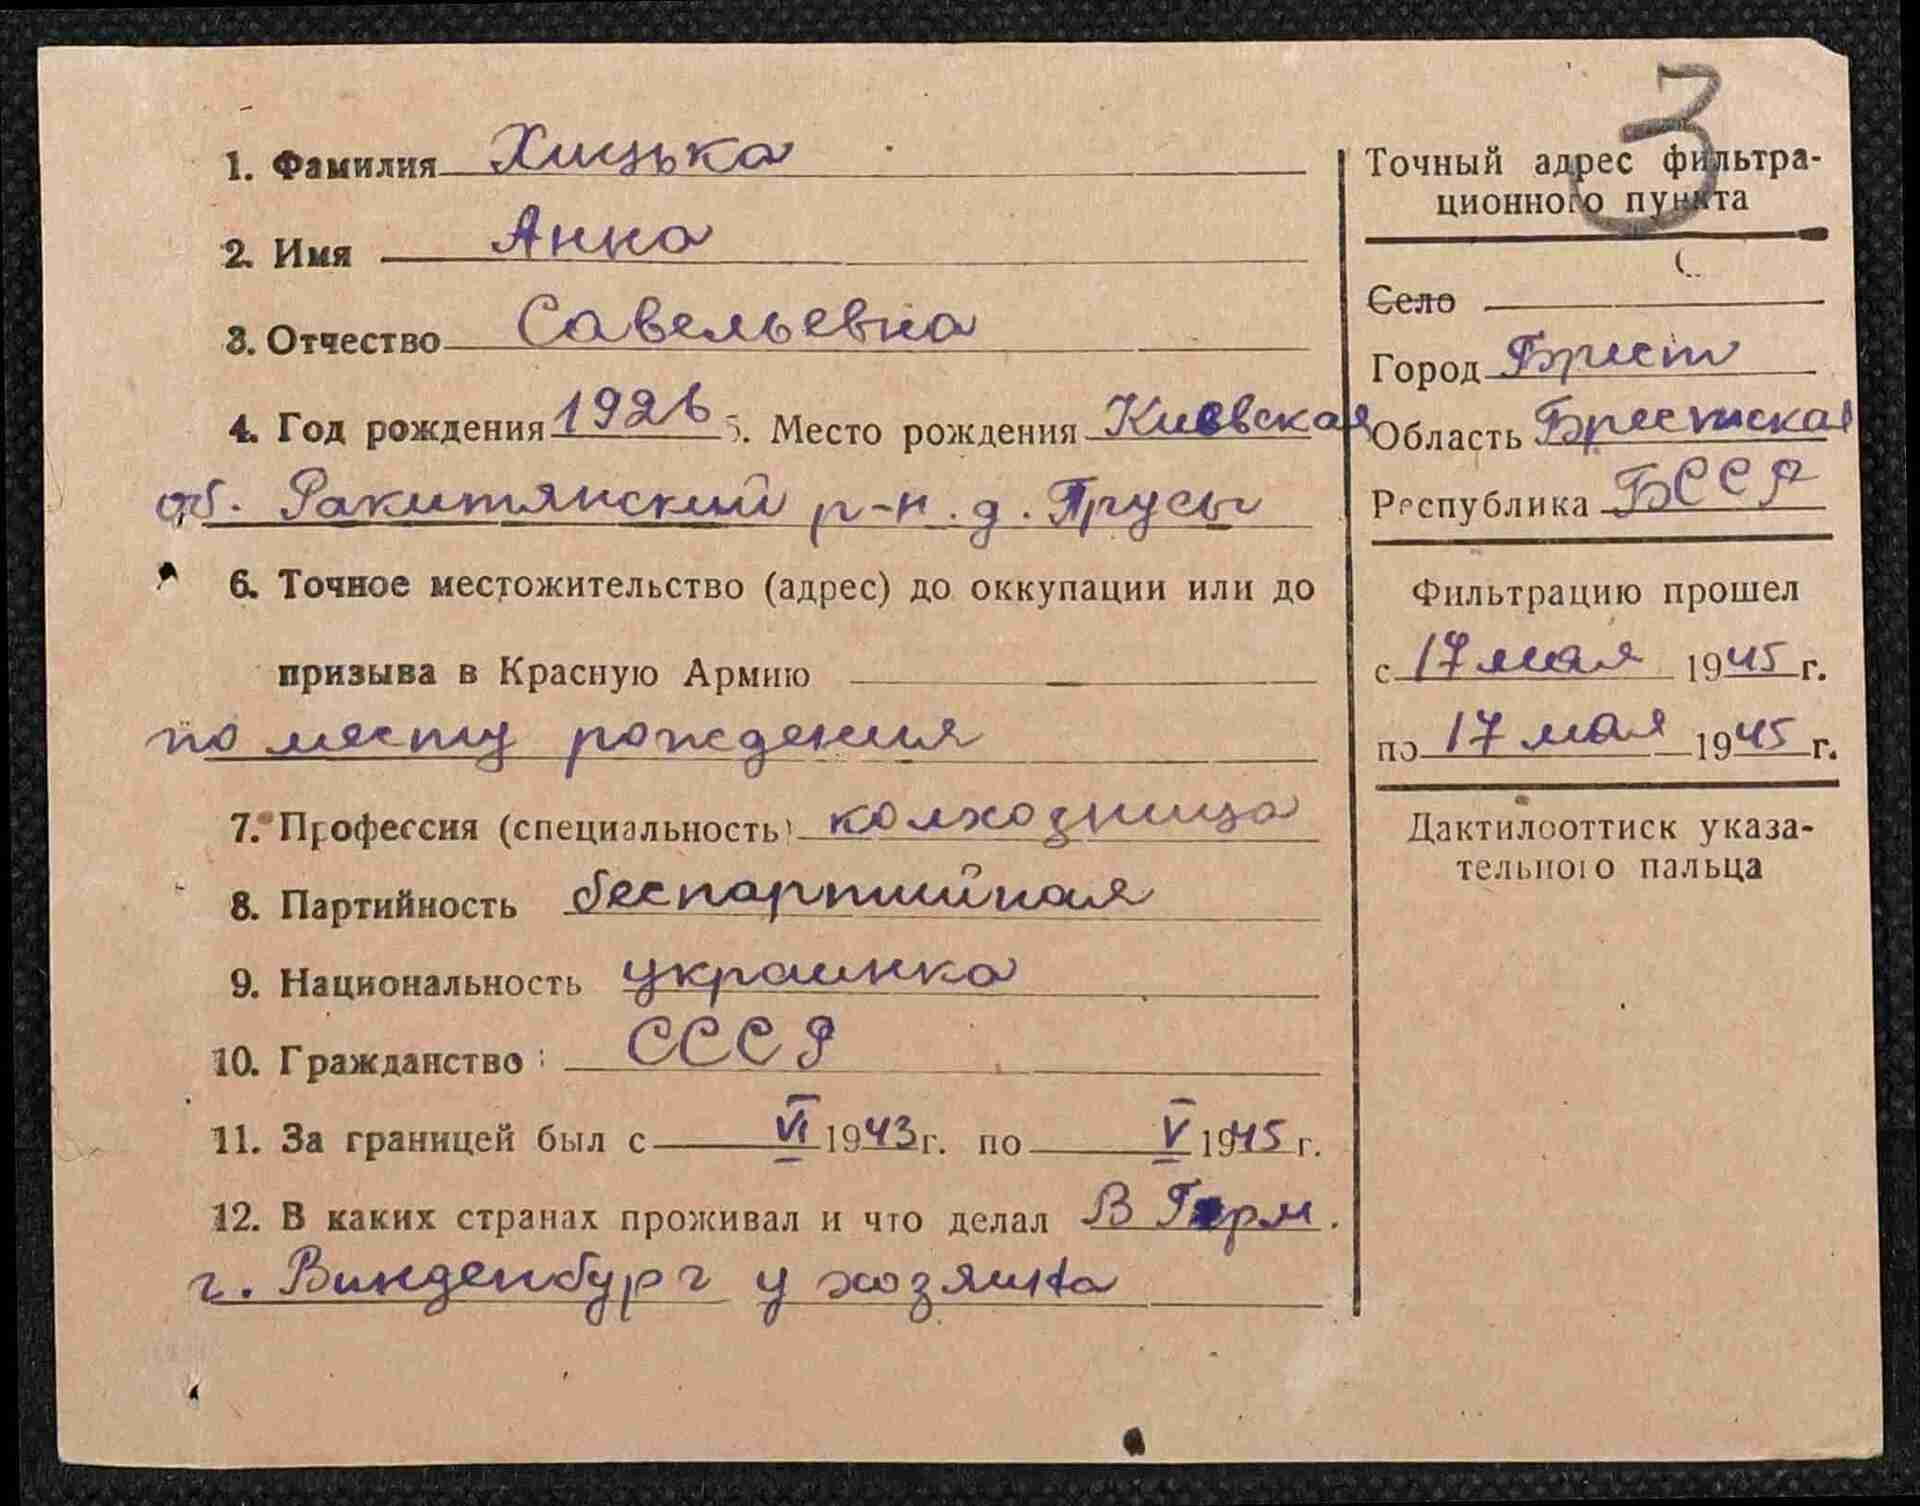 1. Фамилия Хицька
2. Имя Анна
3. Отчество Савельевна
4. Год рождения 1926 5. Место рождения Киевская
об. Ракитянский р-н. д. Трусы
6. Точное местожительство (адрес) до оккупации или до
призыва в Красную Армию
по месту рождения
7. Профессия (специальность) колхозница
8. Партийность беспартийная
9. Национальность украинка
10. Гражданство: СССР
11. За границей был с VI 1943 г. по V 1945 г.
12. В каких странах проживал и что делал В Герм.
г. Винденбург у хозяина
3
Точный адрес фильтра-
ционного пункта
Село
Город Брест
Область Брестская
Республика БССР
Фильтрацию прошел
с 17 мая 1945 г.
по 17 мая 1945 г.
Дактилооттиск указа-
тельного пальца